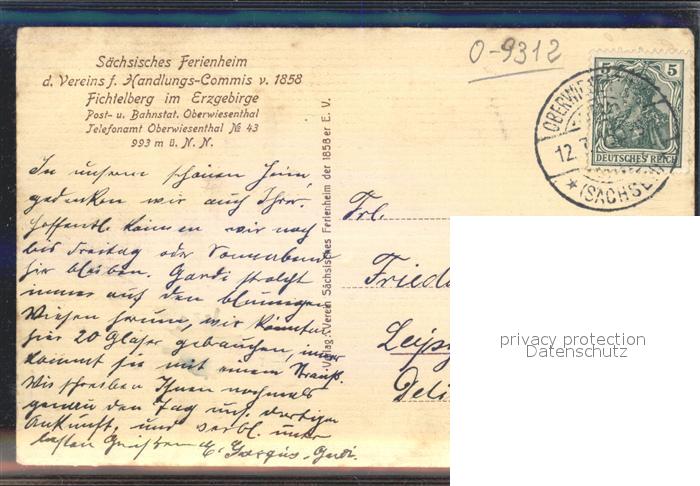 Sächsisches Ferienheim
d. Vereins f. Handlungs-Commis v. 1858
Fichtelberg im Erzgebirge
Post- u. Bahnstat. Oberwiesenthal
Telefonamt Oberwiesenthal № 43
993 m ü. N. N.
0-9312
5 5
DEUTSCHES REICH
OBERWIE
12.
(SACHSE
In unserem schönen Heim,
gedenken wir auch Ihrer.
Hoffentl. können wir noch
bis Freitag oder Sonnabend
hier bleiben. Gardi
immer auf den blumigen
Wiesen herum, wir könnten
hier 20 Gläser gebrauchen, immer
kommt sie mit einem Strauß.
Wir schreiben Ihnen nochmals
genau den Tag uns. dortigen
Ankunft, und verbl. unter
besten Grüßen Gardi.
Verlag: Verein Sächsisches Ferienheim der 1858er E. V.
Frl.
Fried
Leipz
Deli
privacy protection
Datenschutz